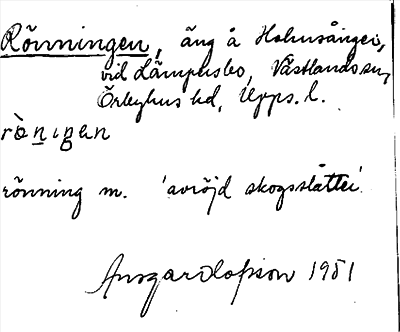 Rönningen, äng å Holmsånger,
vid Lämpusbo, Västlands sn,
Örbyhus hd, Upps. l.
rò̀nıŋen
rönning m. 'avröjd skogsslåtter'
Ansgar Olofsson 1951